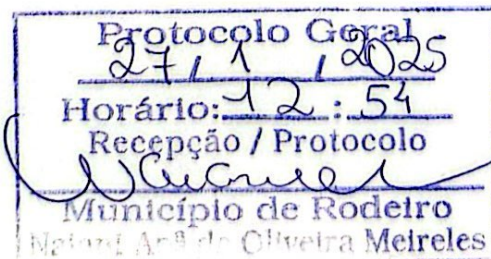 Protocolo Geral
27 / 1 / 2025
Horário: 12 : 54
Recepção / Protocolo
Município de Rodeiro
de Oliveira Meireles